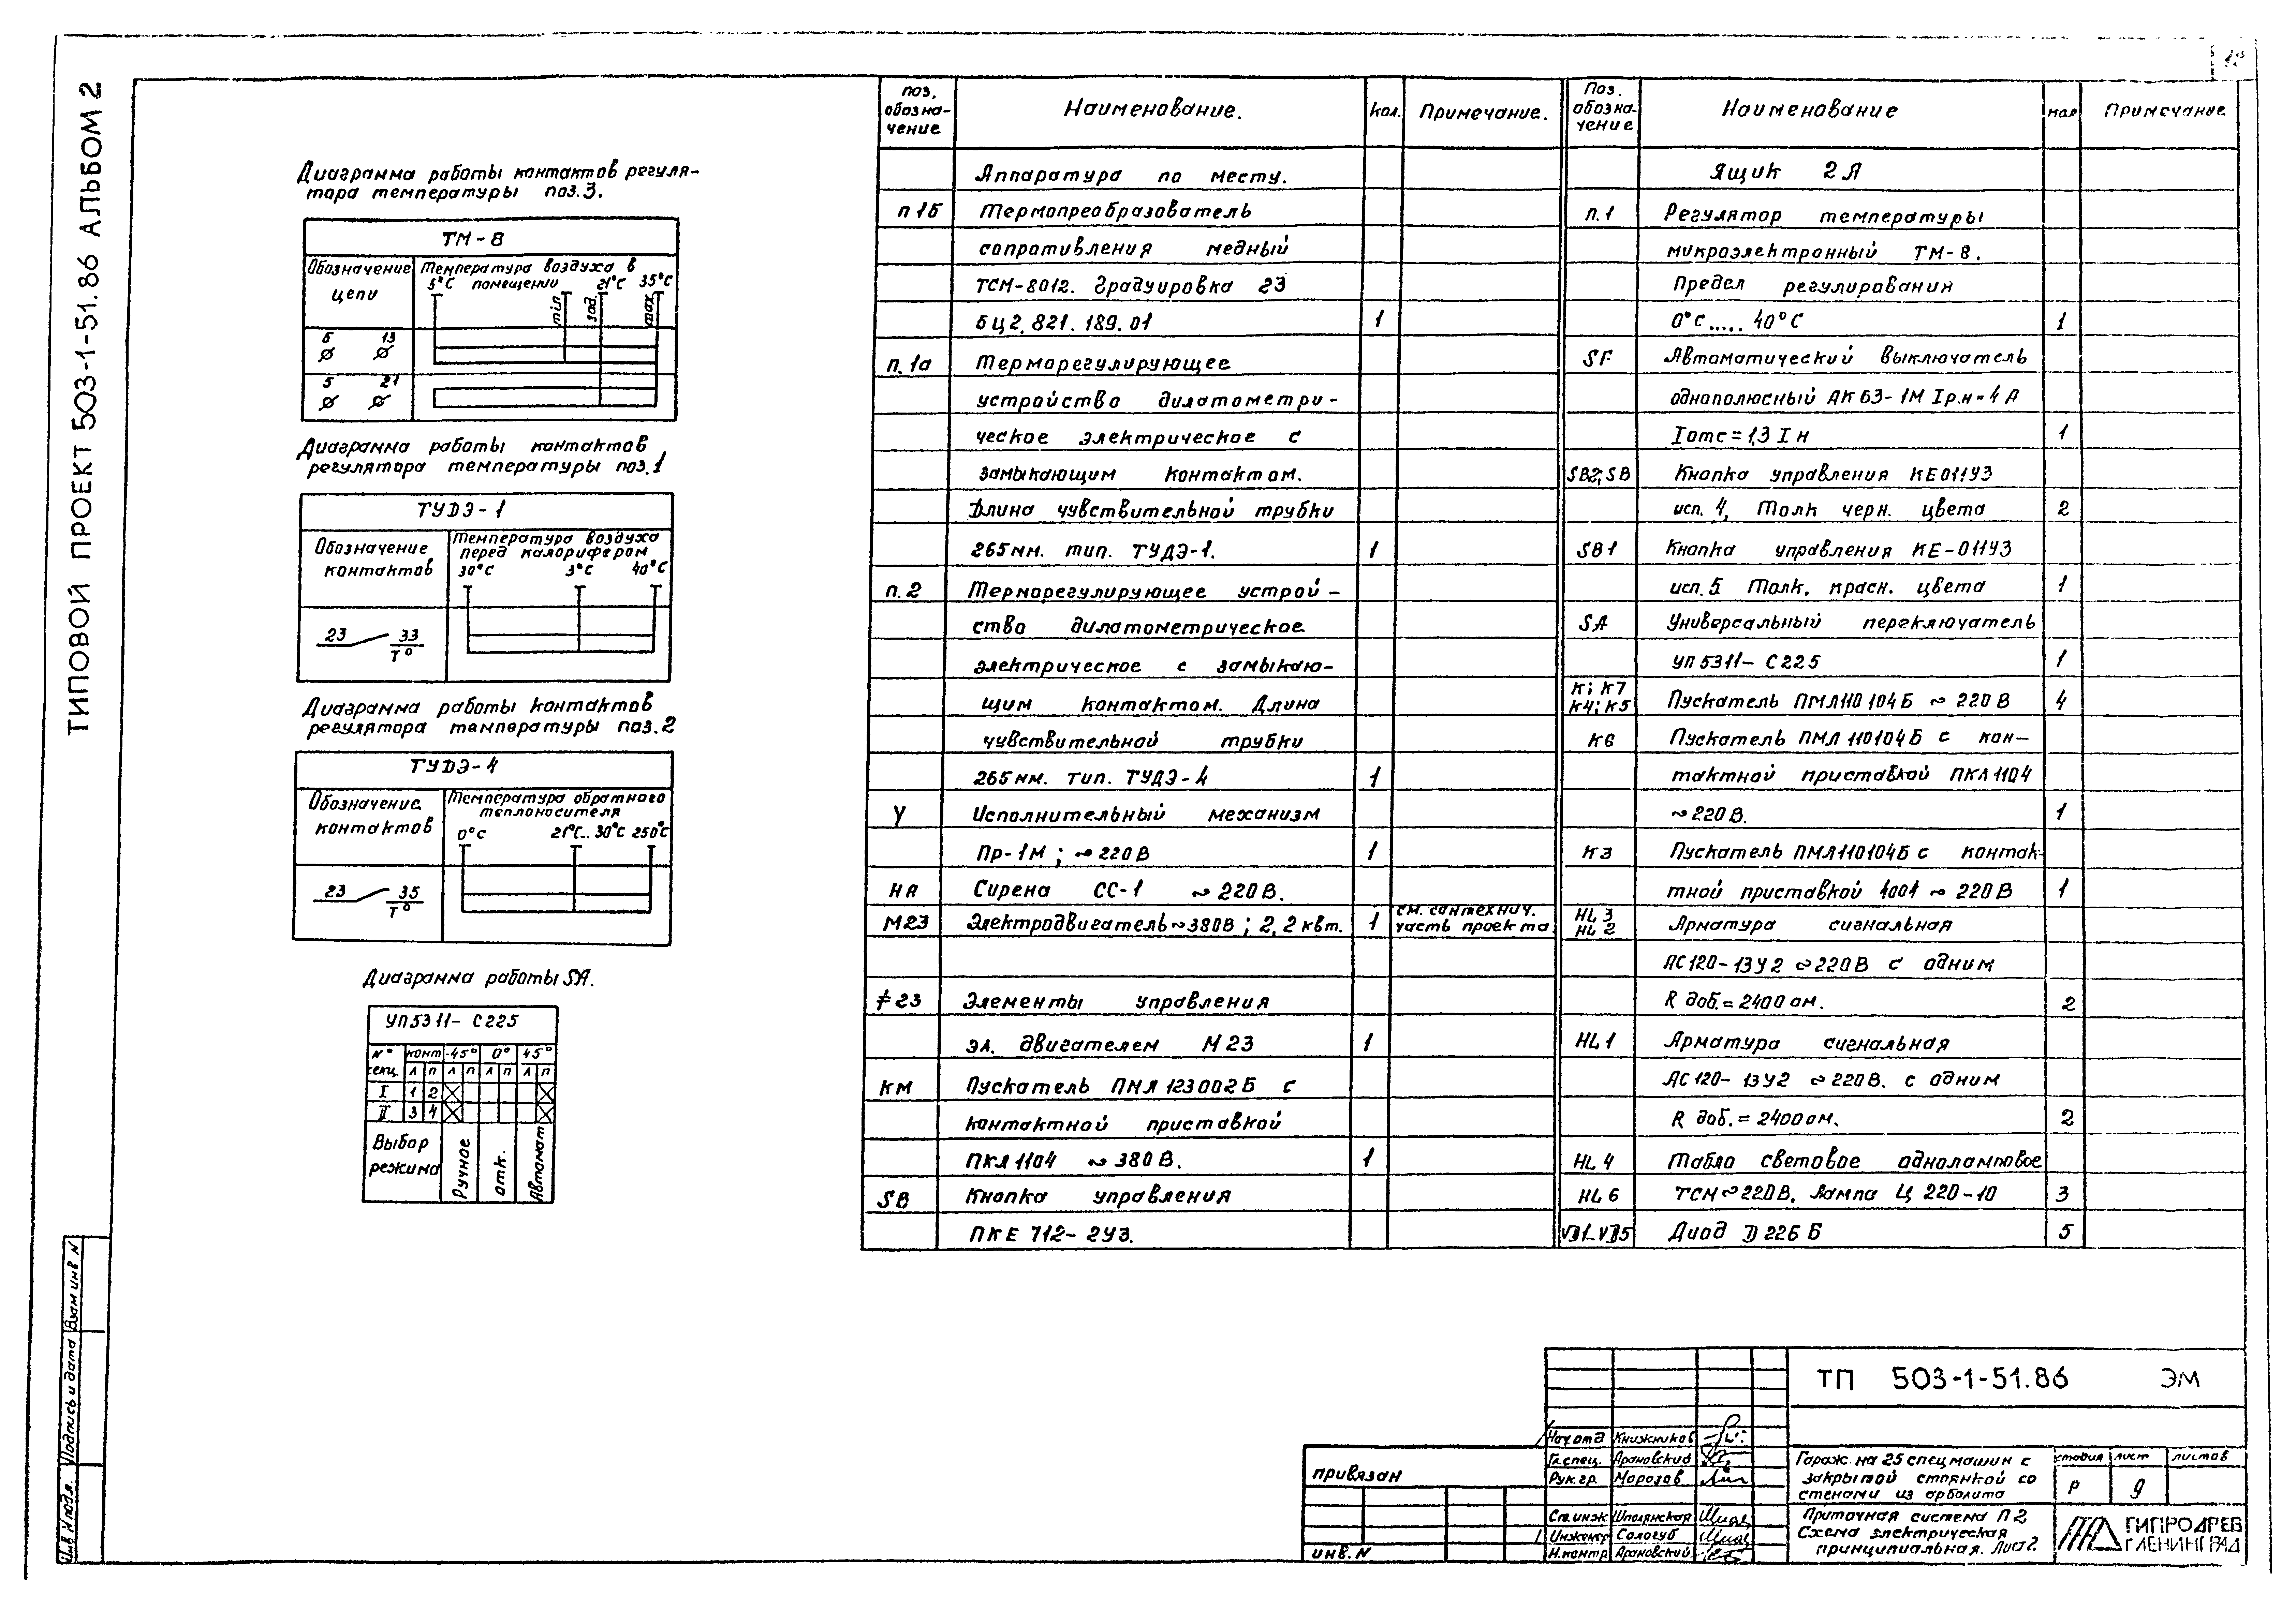 ТИПОВОЙ ПРОЕКТ 503-1-51.86 АЛЬБОМ 2
Диаграмма работы контактов регуля-
тора температуры поз.3.
ТМ-8
Обозначение цепи
Температура воздуха в помещении
5°С 21°С 35°С
min зад. max
6 13
5 21
Диаграмма работы контактов
регулятора температуры поз.1
ТУДЭ-1
Обозначение контактов
Температура воздуха
перед калорифером
30°С 3°С 40°С
23 33
Т°
Диаграмма работы контактов
регулятора температуры поз.2
ТУДЭ-4
Обозначение контактов
Температура обратного
теплоносителя
0°С 21°С.. 30°С 250°С
23 35
Т°
Диаграмма работы SA.
УП5311- С225
N° секц. конт -45° 0° 45°
Л П Л П Л П Л П
I 1 2
II 3 4
Выбор режима
Ручное
отк.
Автомат
поз. обозна-чение Наименование. Кол. Примечание.
Аппаратура по месту.
п 1б Термопреобразователь
сопротивления медный
ТСМ-8012. Градуировка 23
5Ц2. 821. 189. 01 1
п. 1а Терморегулирующее
устройство дилатометри-
ческое электрическое с
замыкающим контактом.
Длина чувствительной трубки
265мм. тип. ТУДЭ-1. 1
п. 2 Терморегулирующее устрой-
ство дилатометрическое
электрическое с замыкаю-
щим контактом. Длина
чувствительной трубки
265мм. тип. ТУДЭ-4 1
У Исполнительный механизм
Пр-1М ; ~220В 1
НА Сирена СС-1 ~220В.
М23 Электродвигатель~380В ; 2,2 квт. 1 см. сантехнич. часть проекта.
≠23 Элементы управления
эл. двигателем М23 1
КМ Пускатель ПМЛ 123002Б с
контактной приставкой
ПКЛ1104 ~380В. 1
SB Кнопка управления
ПКЕ 712- 2У3.
Поз. обозна-чение Наименование кол Примечание
Ящик 2Я
п.1 Регулятор температуры
микроэлектронный ТМ-8.
Предел регулирования
0°С..... 40°С 1
SF Автоматический выключатель
однополюсный АК63-1М Iр.н=4А
Iотс=1,3 Iн 1
SB2; SB Кнопка управления КЕ011У3
исп. 4, Толк черн. цвета 2
SB1 Кнопка управления КЕ-011У3
исп. 5 Толк. красн. цвета 1
SA Универсальный переключатель
УП5311- С225 1
К; К7
К4; К5 Пускатель ПМЛ110104Б ~ 220В 4
К6 Пускатель ПМЛ 110104Б с кон-
тактной приставкой ПКЛ1104
~220В. 1
К3 Пускатель ПМЛ110104Б с контак-
тной приставкой 4004 ~ 220В 1
HL3
HL2 Арматура сигнальная
АС120-13У2 ~220В с одним
R доб.=2400ом. 2
HL1 Арматура сигнальная
АС120- 13У2 ~220В. с одним
R доб.=2400ом. 2
HL4 Табло световое одноламповое
HL6 ТСМ~220В. Лампа Ц 220-10 3
VD1-VD5 Диод Д226Б 5
Взам инв N
Подпись и дата
Инв N подл.
привязан
инв. N
Нач.отд Книжников
Гл.спец. Арановский
Рук.гр. Морозов
Ст.инж Шполянская
Инженер Сологуб
Н.контр Арановский
ТП 503-1-51.86 ЭМ
Гараж на 25 спецмашин с
закрытой стоянкой со
стенами из арболита
стадия лист листов
Р 9
Приточная система П2
Схема электрическая
принципиальная. Лист2.
ГИПРОДРЕВ
Г.ЛЕНИНГРАД